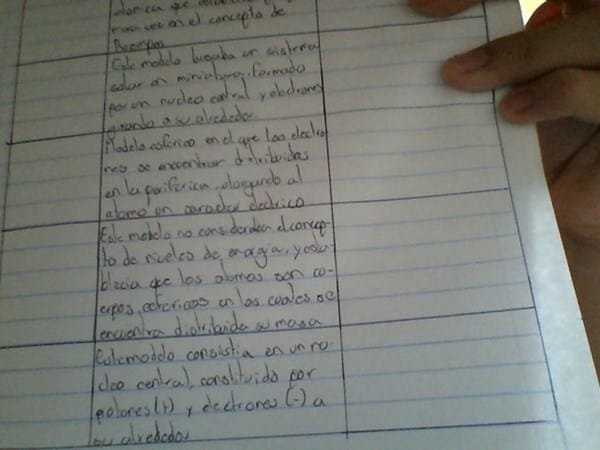 atomica que
por vez en el concepto de
Este modelo buscaba un sistema
solar en miniatura, formado
por un nucleo central y electrones
girando a su alrededor.
Modelo esferico en el que los electro
nes se encuentran distribuidas
en la periferica, otorgando al
atomo un caracter electrico
Este modelo no consideraba el concep-
to de niveles de energia, y esta-
blecia que los atomos son cu-
erpos esfericos en los cuales se
encuentra distribuida su masa
Este modelo consistia en un nu-
cleo central, constituido por
protones (+) y electrones (-) a
su alrededor